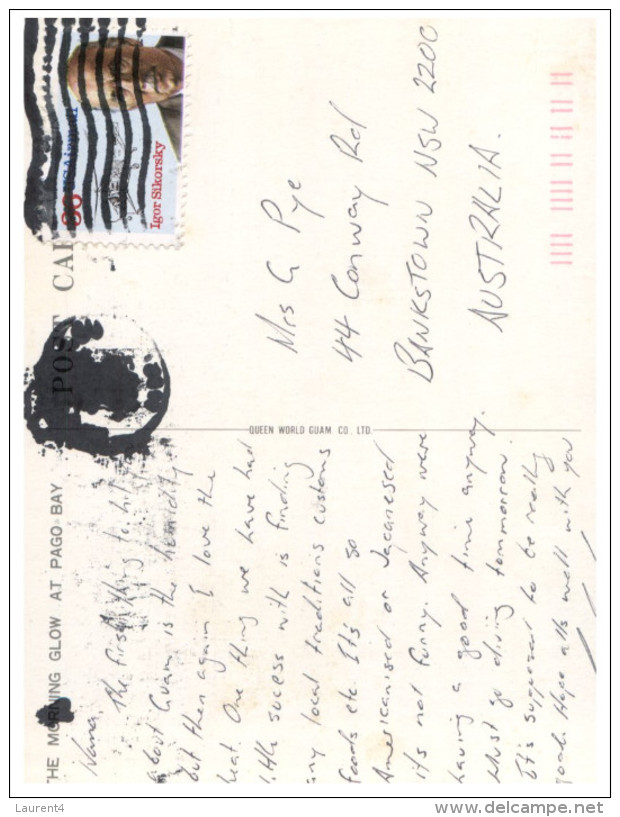 THE MORNING GLOW AT PAGO BAY
POST CAR
36 USAirmail
Igor Sikorsky
Nana,
The first thing to hit
about Guam is the humidity
but then again I love the
heat. One thing we have had
little sucess with is finding
any local traditions customs
foods etc. It's all so
Americanised or Japanesed
it's not funny. Anyway were
having a good time anyway.
Must go diving tommorrow.
It's supposed to be really
good. Hope alls well with you
QUEEN WORLD GUAM. CO. LTD.
Mrs G Pye
44 Conway Rd
BANKSTOWN NSW 2200
AUSTRALIA.
Laurent4